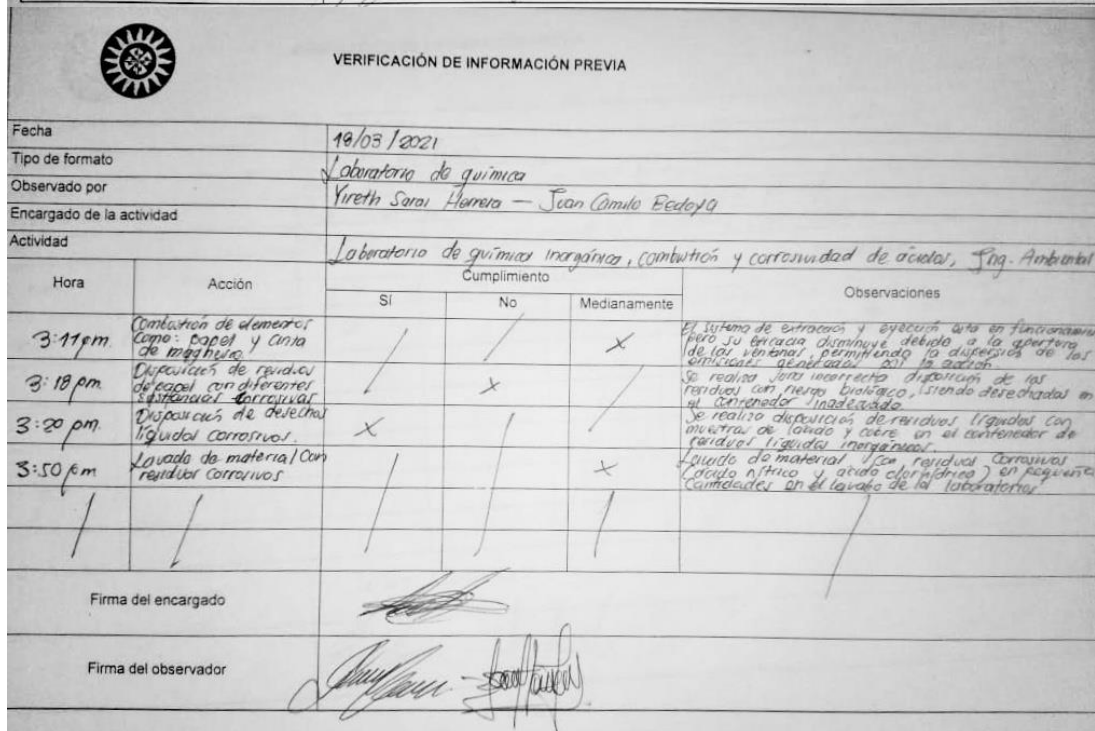 VERIFICACIÓN DE INFORMACIÓN PREVIA
Fecha 18/03/2021
Tipo de formato Laboratorio de química
Observado por Yireth Sarai Herrera — Juan Camilo Bedoya
Encargado de la actividad
Actividad Laboratorio de química inorgánica, combustión y corrosividad de ácidos, Ing. Ambiental
Hora Acción Cumplimiento Observaciones
Sí No Medianamente
3:11pm. Combustión de elementos
como: papel y cinta
de magnesio
X
El sistema de extracción y eyección esta en funcionamiento
pero su eficacia disminuye debido a la apertura
de las ventanas, permitiendo la dispersión de las
emisiones generadas por la acción.
3:18 pm Disposición de residuos
de papel con diferentes
sustancias corrosivas
X
Se realiza una incorrecta disposición de los
residuos con riesgo biológico, siendo desechados en
el contenedor inadecuado
3:20 pm. Disposición de desechos
líquidos corrosivos.
X
Se realiza disposición de residuos líquidos con
muestras de y cobre en el contenedor de
residuos líquidos inorgánicos.
3:50 pm Lavado de material con
residuos corrosivos
X
Lavado de material con residuos corrosivos
(ácido nítrico y ácido clorhídrico) en pequeñas
cantidades en el lavabo de los laboratorios
Firma del encargado
Firma del observador